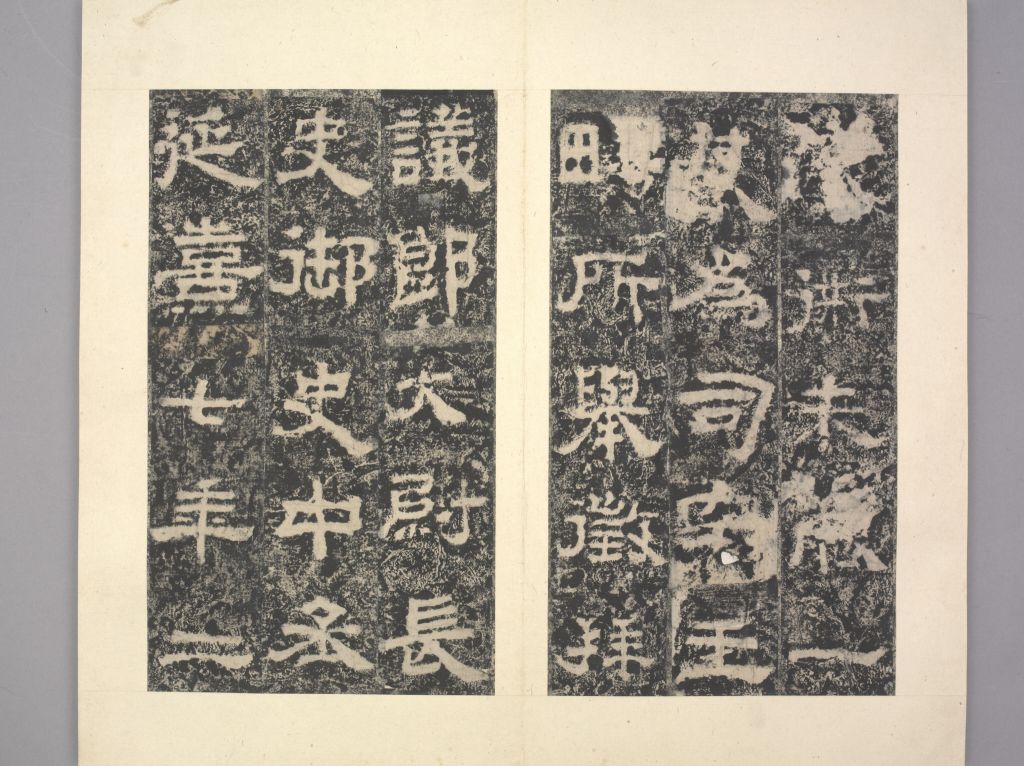 衖未能一
朞為司空王
畼所舉徵拜
議郎大尉長
史御史中丞
延熹七年二